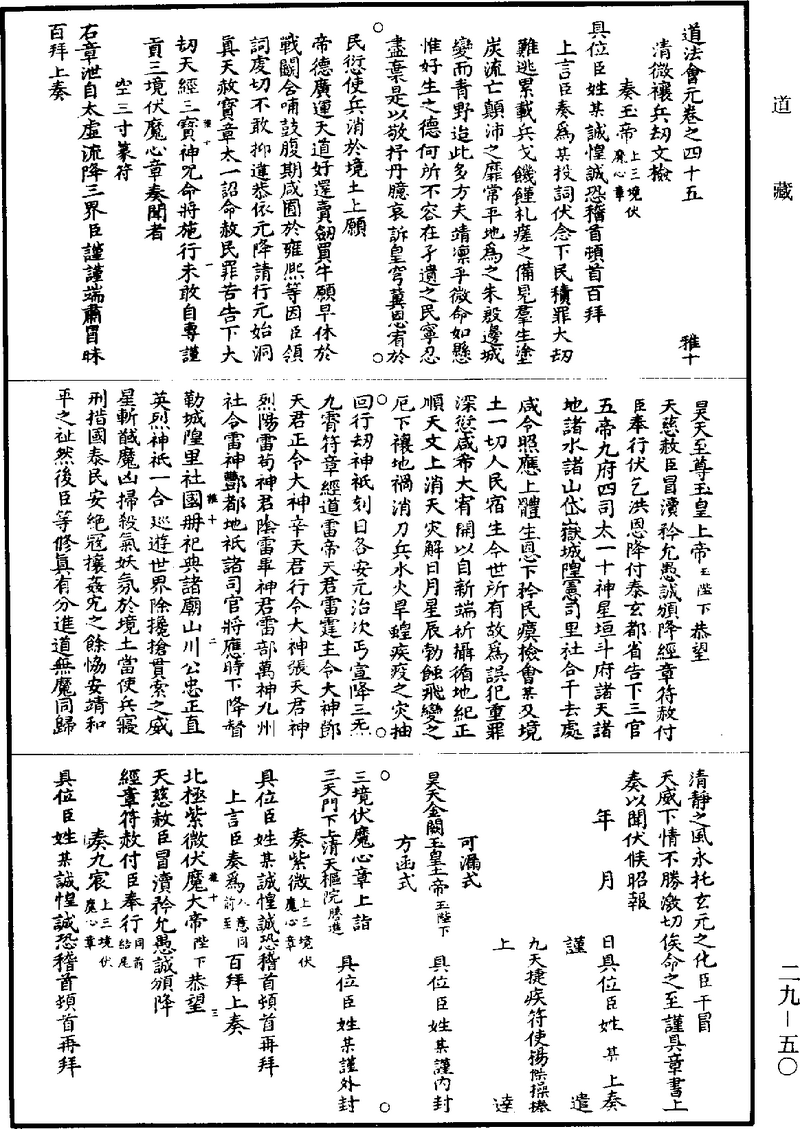 道藏
道法會元卷之四十五 雅十
清微禳兵刧文檢
奏玉帝 上三境伏魔心章
具位臣姓某誠惶誠恐稽首頓首百拜
上言臣奏為某投詞伏念下民積罪大刧
難逃累載兵戈饑饉札瘥之備見羣生塗
炭流亡顛沛之靡常平地為之朱殷邊城
變而青野迨此多方夫靖凛乎微命如懸
惟好生之德何所不容在孑遺之民寧忍
盡棄是以敬抒丹臆哀訴皇穹冀恩宥於
民愆使兵消於境土上願
帝德廣運天道好還賣劒買牛願早休於
戰鬬含哺鼓腹期咸囿於雍熙等因臣領
詞虔切不敢抑違恭依元降請行元始洞
真天赦寶章太一詔命赦民罪苦告下大
刧天經三寶神咒命將施行未敢自專謹
貢三境伏魔心章奏聞者
空三寸篆符
右章泄自太虛流降三界臣謹謹端肅冒昧
百拜上奏
昊天至尊玉皇上帝玉陛下恭望
天慈赦臣冒瀆矜允愚誠頒降經章符赦付
臣奉行伏乞洪恩降付泰玄都省告下三官
五帝九府四司太一十神星垣斗府諸天諸
地諸水諸山岱嶽城隍憲司里社合干去處
咸令照應上體生恩下矜民瘼檢會某及境
土一切人民宿生今世所有故為誤犯重罪
深愆咸希大宥開以自新端祈攝循地紀正
順天文上消天灾解日月星辰勃蝕飛變之
厄下禳地禍消刀兵水火旱蝗疾疫之灾抽
回行刧神祇刻日各安元治次丐宣降三炁
九霄符章經道雷帝天君雷霆主令大神鄧
天君正令大神辛天君行令大神張天君神
烈陽雷苟神君陰雷畢神君雷部萬神九州
社令雷神酆都地祇諸司官將應時下降督
勒城隍里社國册祀典諸廟山川公忠正直
英烈神祇一合巡遊世界除攙搶貫索之威
星斬馘魔凶掃殺氣妖氛於境土當使兵寢
刑措國泰民安絕寇攘姦宄之餘恊安靖和
平之祉然後臣等修真有分進道無魔同歸
清靜之風永托玄元之化臣干冒
天威下情不勝激切俟命之至謹具章書上
奏以聞伏候昭報
年 月 日具位臣姓某上奏
謹遣
九天捷疾符使揚傑操捧
上達
可漏式
昊天金闕玉皇上帝玉陛下 具位臣姓某謹內封
方函式
三境伏魔心章上詣
三天門下上清天樞院謄進 具位臣姓某謹外封
奏紫微 上三境伏魔心章
具位臣姓某誠惶誠恐稽首頓首再拜
上言臣奏為入意同前至百拜上奏
北極紫微伏魔大帝陛下恭望
天慈赦臣冒瀆矜允愚誠頒降
經章符赦付臣奉行同前結尾
奏九宸 上三境伏魔心章
具位臣姓某誠惶誠恐稽首頓首再拜
二九－五〇